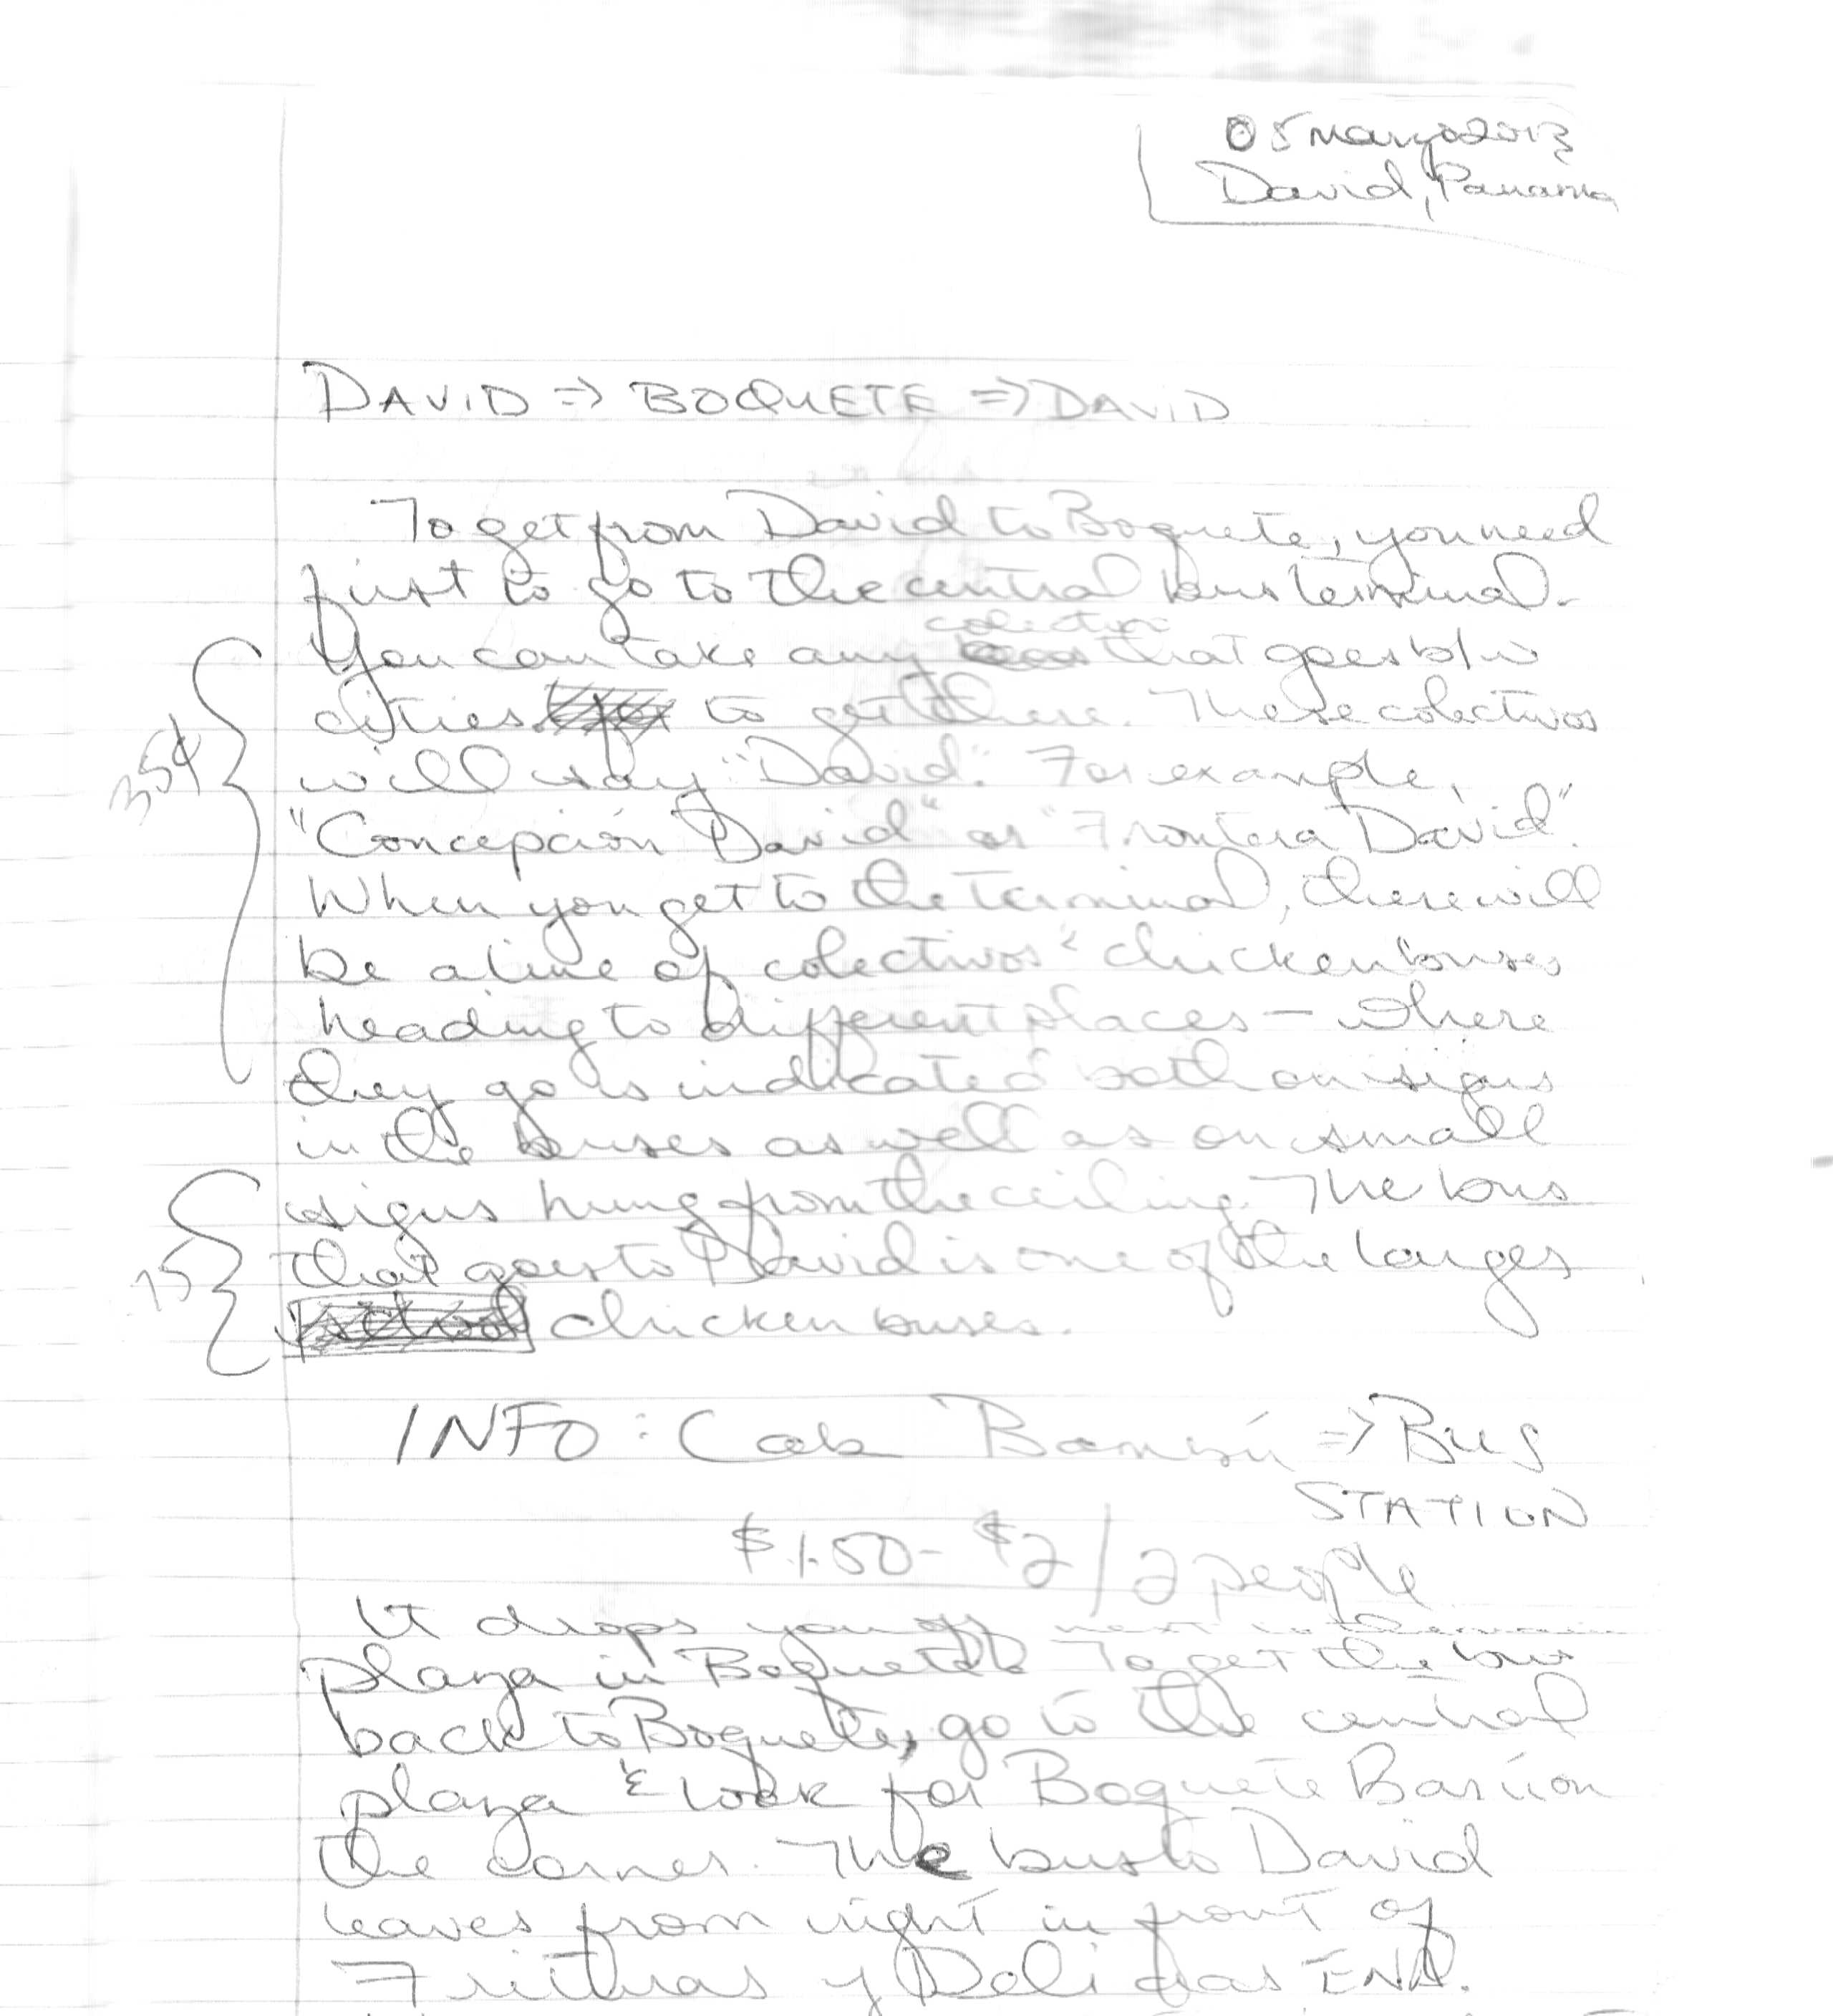 05 Marzo 2013
David, Panama
DAVID => BOQUETE => DAVID
To get from David to Boquete, you need
first to go to the central bus terminal.
colectivo
You can take any that goes b/w
cities to get there. These colectivos
35¢
will say "David." For example,
"Concepción David" or "Frontera David".
When you get to the terminal, there will
be a line of colectivos & chicken buses
heading to different places — where
they go is indicated both on signs
in the buses as well as on small
signs hung from the ceiling. The bus
that goes to David is one of the larges
.75
chicken buses.
INFO: Cab Bambú => BUS
STATION
$1.50 - $2/2 people
It drops you off next to the main
plaza in Boquete. To get the bus
back to Boquete, go to the central
plaza & look for Boquete Bar on
the corner. The bus to David
leaves from right in front of
Frituras y Delicias ENA.